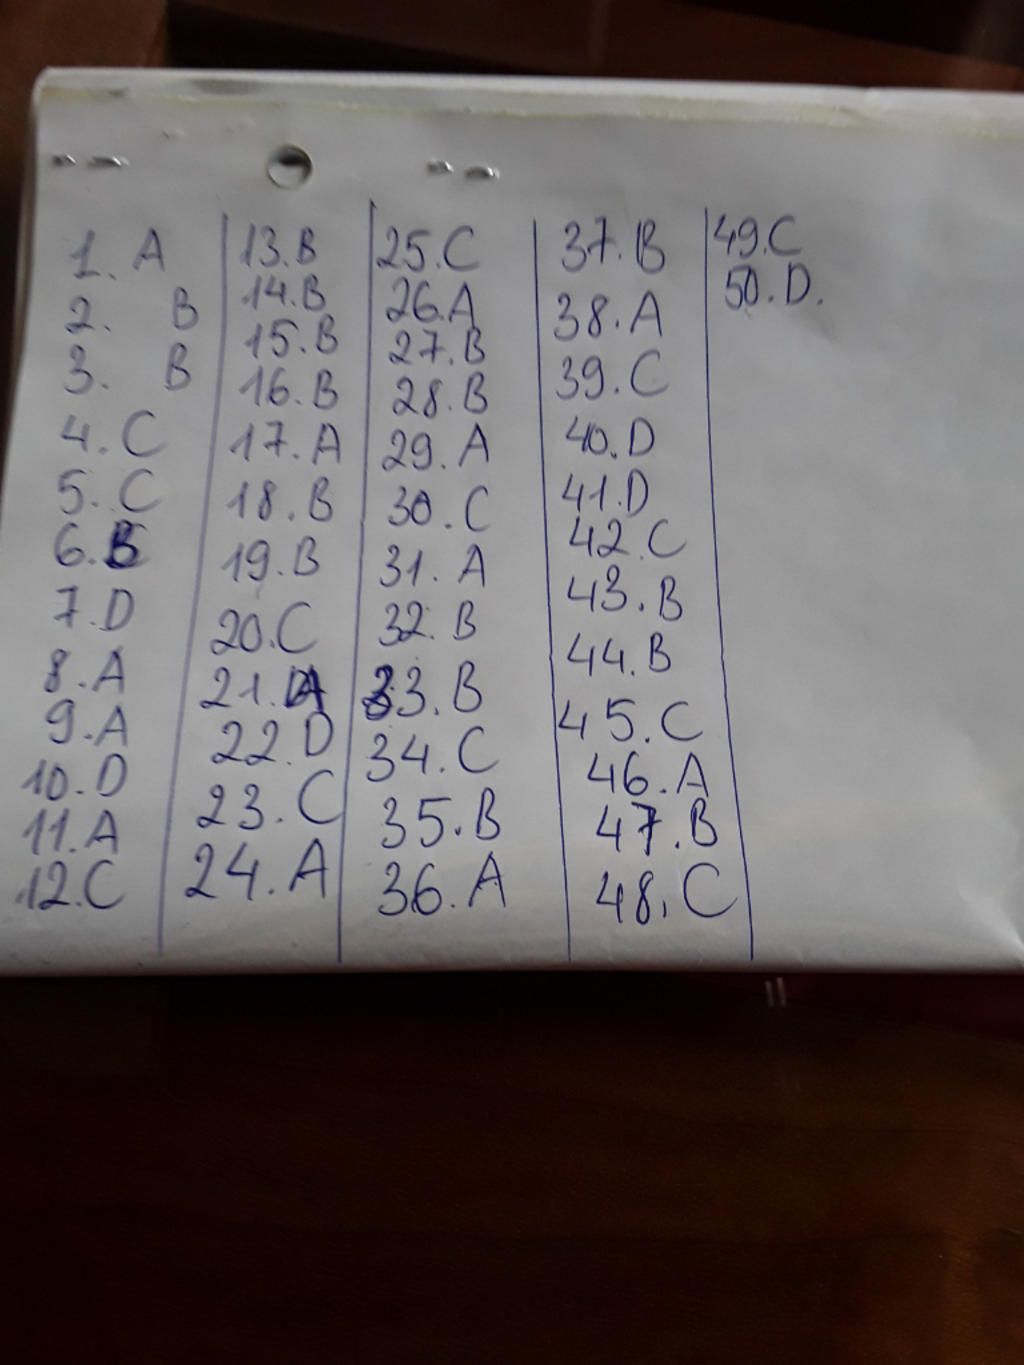 1. A
2. B
3. B
4. C
5. C
6. B
7. D
8. A
9. A
10. D
11. A
12. C
13. B
14. B
15. B
16. B
17. A
18. B
19. B
20. C
21. A
22. D
23. C
24. A
25. C
26. A
27. B
28. B
29. A
30. C
31. A
32. B
33. B
34. C
35. B
36. A
37. B
38. A
39. C
40. D
41. D
42. C
43. B
44. B
45. C
46. A
47. B
48. C
49. C
50. D.